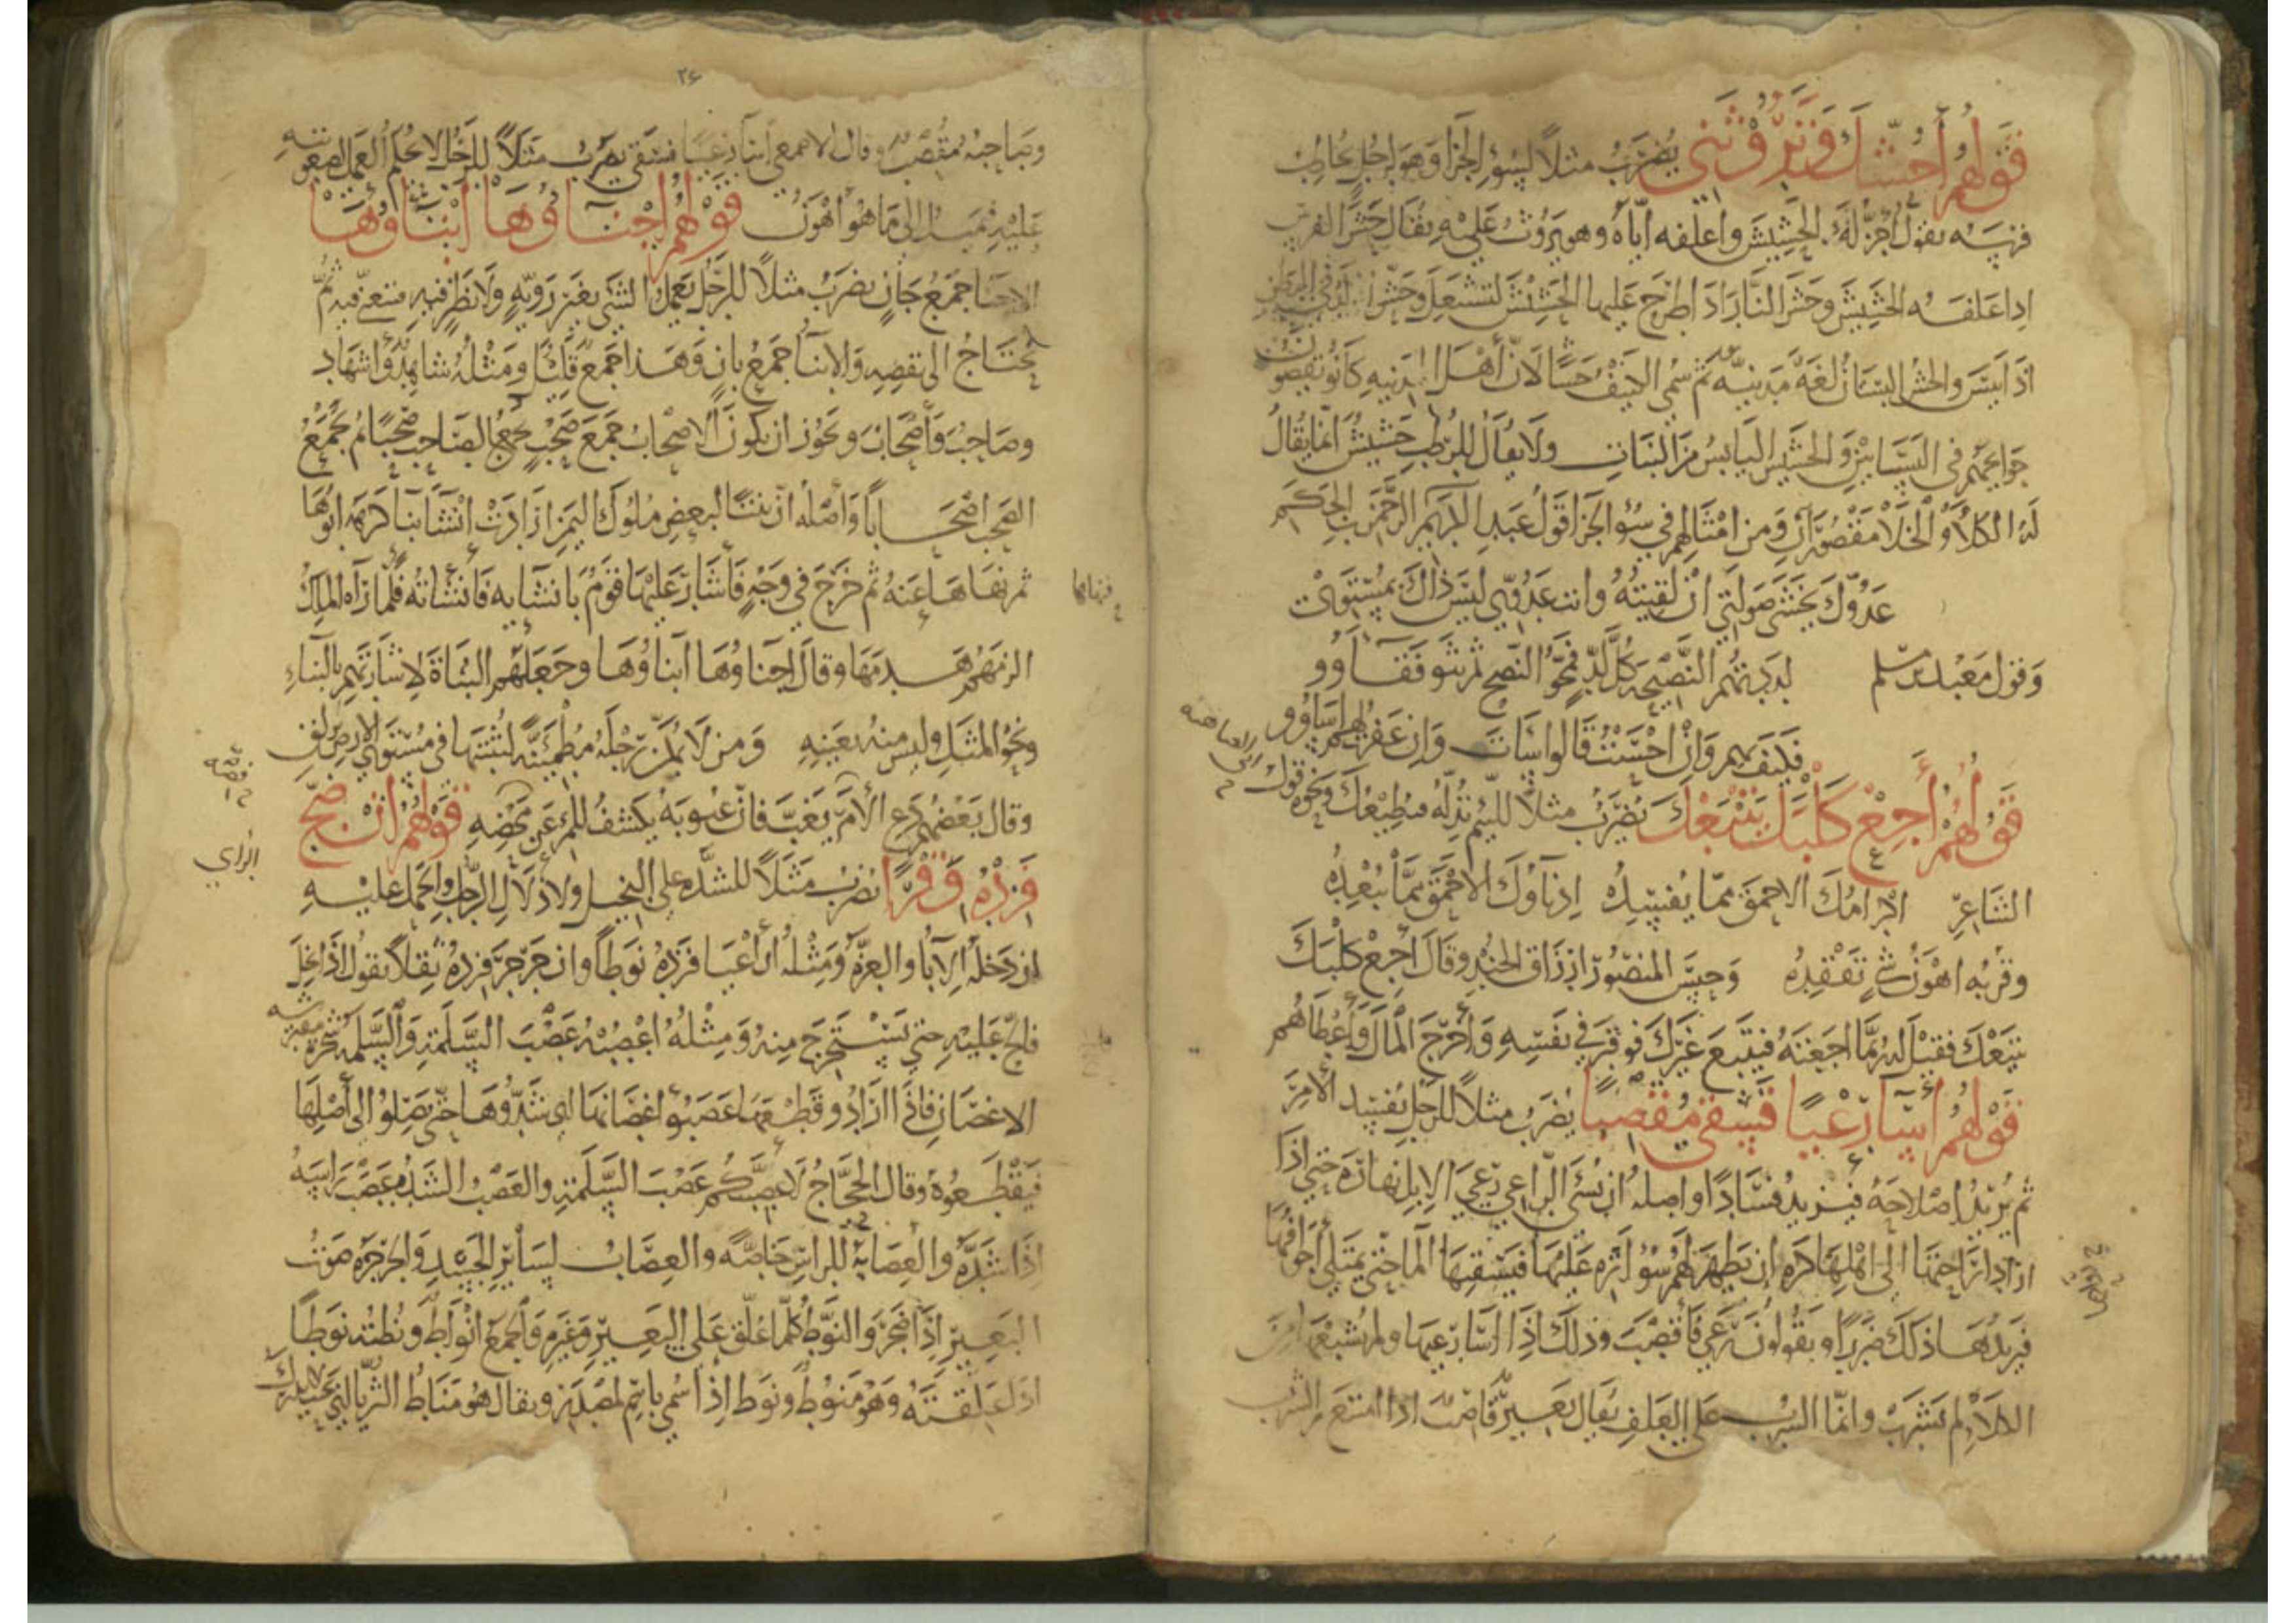 قولهم أحشك وتروثني يضرب مثلا لسوء الجزا وهو لرجل يخاطب
فرسه يقول أجز لك الحشيش واعلفه اياه وهو يروث عليه يقال حش الفرس
اذا علفه الحشيش وحش النار اذا اطرح عليها الحشيش لتشتعل وحش الولد في البطن
اذا يبس والحش البستان لغة مدنية ثم سمي الكنيف حشا لان أهل المدينه كانو يقضون
حوايجهم في البساتين والحشيش اليابس من النبات ولا يقال للرطب حشيش انما يقال
له الكلأ والخلا مقصوران ومن امثالهم في سؤ الجزا قول عبد الرحمن بن الحكم
عدوك يخشى صولتي ان لقيته وانت عدوي ليس ذاك بمستوي
وقول معبد بن مسلم لددتهم النصيحة كل لد فمجوا النصح ثم ثنو فقاؤو
فكيف بهم وان احسنت قالوا اسات وان غفرت لهم اساؤو
قولهم أجع كلبك يتبعك يضرب مثلا للئيم تذله فيطيعك ونحوه قول
الشاعر اكرامك الاحمق مما يفسده ادناؤك الاحمق مما يبعده
وقربه اهون شي تفقده وحبس المنصور ارزاق الجند وقال أجع كلبك
يتبعك فقيل له ربما اجعته فيتبع غيرك فوقر في نفسه وأخرج المال وأعطاهم
قولهم أسا رعيا فسقى مقصبا يضرب مثلا للرجل يفسد الامر
ثم يريد اصلاحه فيزيد فسادا واصله ان يسئ الراعي رعي الابل نهاره حتى اذا
اراد اراحتها الى اهلها كره ان يظهر لهم سؤ اثره عليها فيسقيها الما حتى يمتلي أجوافها
فيزيدها ذلك ضررا ويقولون رعي فأقصب وذلك اذا اسا رعيها ولم يشبعها من
الكلأ لم تشرب وانما الشرب على العلف يقال بعير قاصب اذا امتنع من الشرب
٢٤
وصاحبه مقصب وقال الاصمعي اسا رعيا فسقى يضرب مثلا للرجل لا يحكم العمل لصعوبته
عليه فيميل الى ما هو أهون قولهم أجناؤها أبناؤها
الاجنا جمع جان يضرب مثلا للرجل يعمل الشئ بغير روية ولا نظر فيه فيتعنى فيه ثم
يحتاج الى نقضه والابنا جمع بان وهذا جمع قليل ومثله شاهد واشهاد
وصاحب وأصحاب ويجوز ان يكون الاصحاب جمع صحب يجمع الصاحب صحبا ثم يجمع
الصحب اصحابا وأصله ان بنتا لبعض ملوك اليمن ارادت انشا بنا كرهه ابوها
ثم نهاها عنه ثم خرج في وجه فأشار عليها قوم بانشايه فأنشأته فلما رآه الملك
الزمهم هدمها وقال اجناؤها أبناؤها وجعلهم البناة لاشارتهم بالبناء
ونحو المثل وليس منه بعينه ومن لا يكن رجله مطمئنة ليثبتها في مستوى الارض تزلق
وقال بعضهم دع الأمر يغب فان غبوبه يكشف للمرء عن محضه قولهم ان ضج
فزده وقرا يضرب مثلا للشده على البخيل ولاذلال الرجل والحمل عليه
ان دخله الابا والعزه ومثله ان أعيا فزده نوطا وان جرجر فزده ثقلا يقول اذا بخل
فالح عليه حتى تستخرج منه ومثله اعصبه عصب السلمه والسلمه شجره
الاغصان فاذا ارادو قطعها عصبوا اغصانها اي شدوها حتى يصلو الى أصلها
فيقطعوه وقال الحجاج لاعصبنكم عصب السلمة والعصب الشد وعصب راسه
اذا شده والعصابة للراس خاصة والعصاب لساير الجسد والجرجره صوت
البعير اذا ضجر والنوط كلما علق على البعير وغيره والجمع انواط ونطته نوطا
اذا علقته وهو منوط ونوط اذا سمي باسم المصدر ويقال هو مناط الثريا
الراي